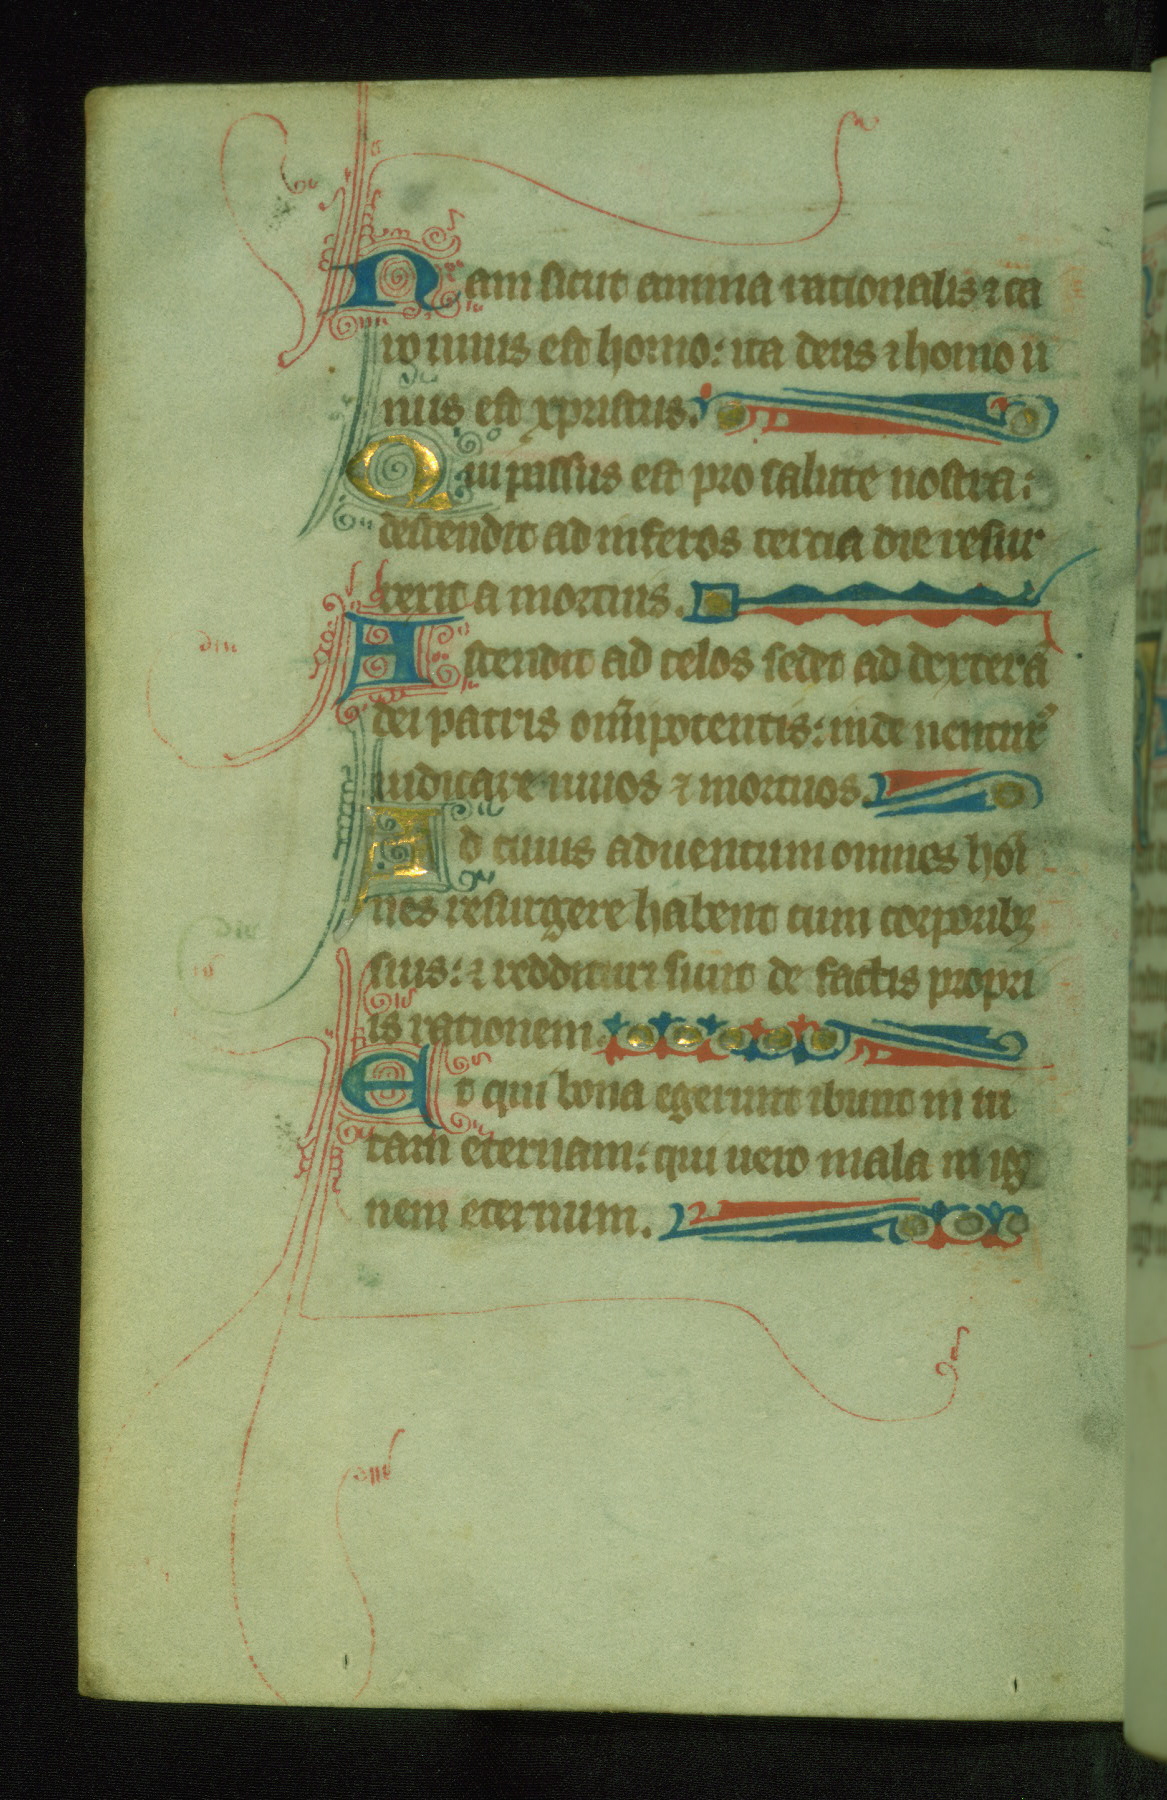 Nam sicut anima rationalis ⁊ ca
ro unus est homo: ita deus ⁊ homo u
nus est xpristus.
Qui passus est pro salute nostra:
descendit ad inferos tercia die resur
rexit a mortuis.
Ascendit ad celos sedet ad dexterā
dei patris omīpotentis: inde uenturꝰ
iudicare uiuos ⁊ mortuos.
Ad cuius aduentum omnes hoī
nes resurgere habent cum corporibꝫ
suis: ⁊ reddituri sunt de factis propri
is rationem.
Et qui bona egerunt ibunt in ui
tam eternam: qui uero mala in ig
nem eternum.